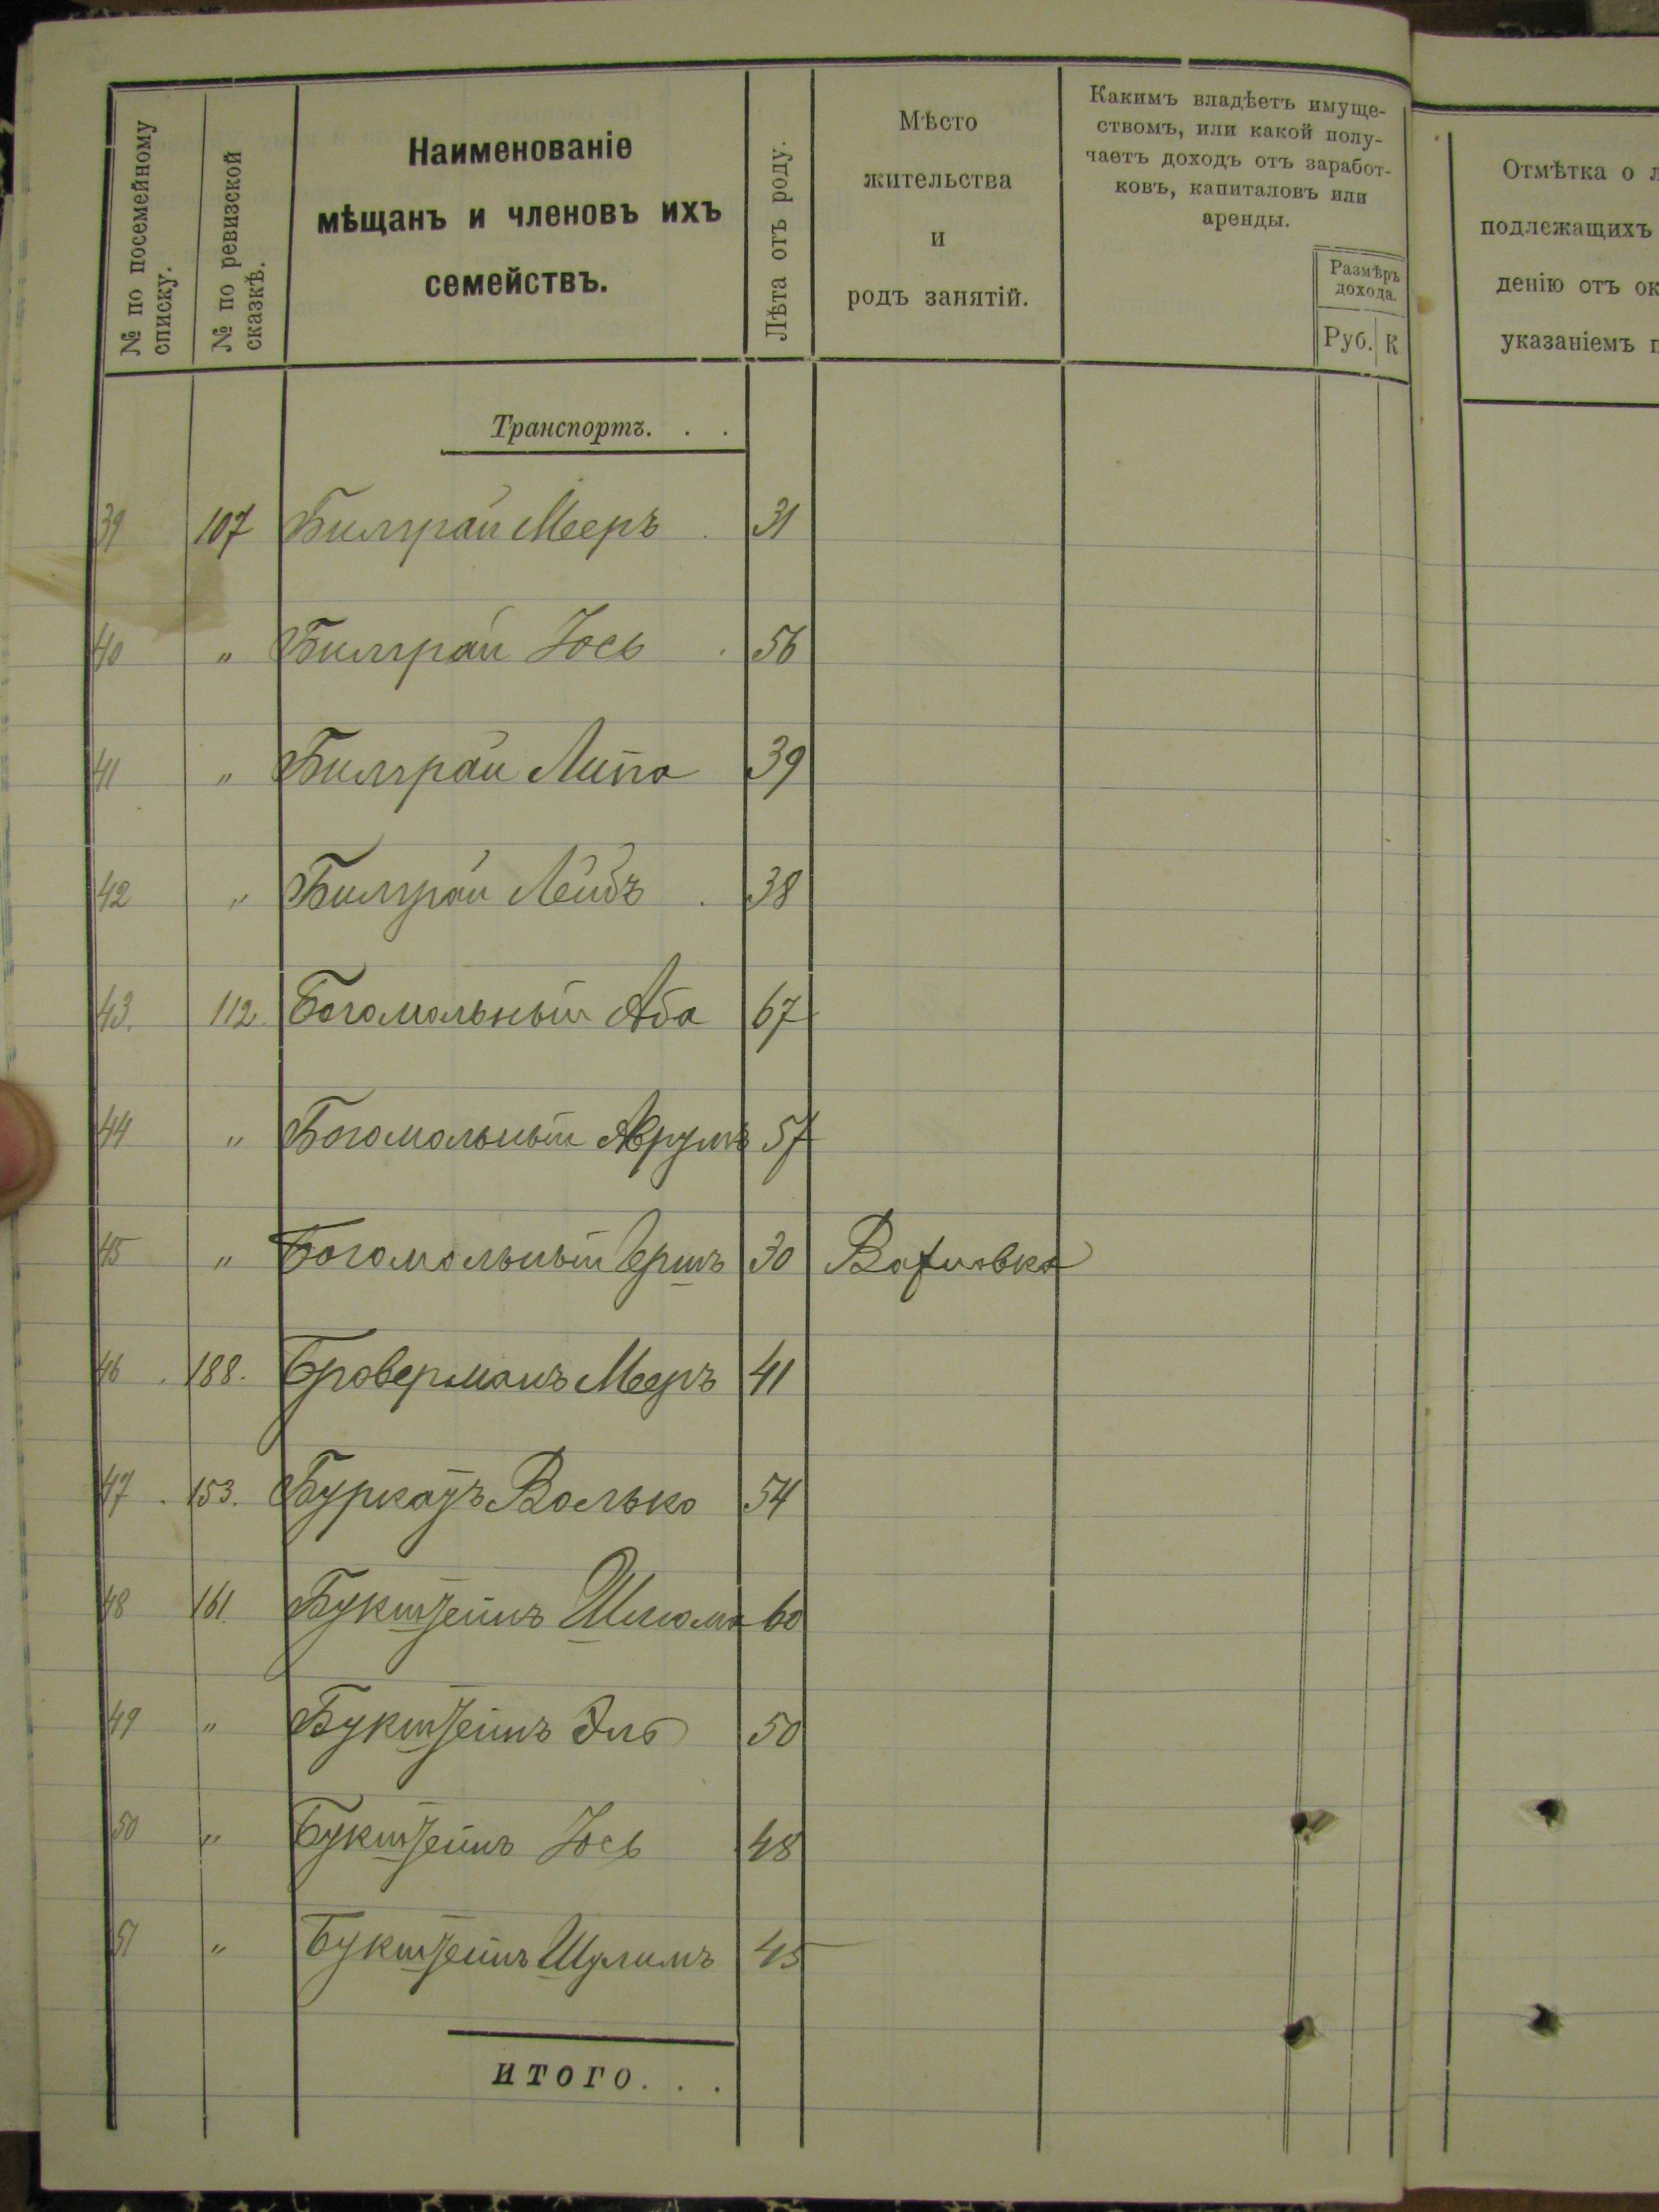 № по посемейному
списку.
№ по ревизской
сказкѣ.
Наименованіе
мѣщанъ и членовъ ихъ
семействъ.
Лѣта отъ роду.
Мѣсто
жительства
и
родъ занятій.
Какимъ владѣетъ имуще-
ствомъ, или какой полу-
чаетъ доходъ отъ заработ-
ковъ, капиталовъ или
аренды.
Размѣръ
дохода.
Руб. К
Отмѣтка о л
подлежащихъ
денію отъ ок
указаніемъ п
Транспортъ. . .
39 107 Билграй Мееръ 31
40 " Билграй Іось 56
41 " Билграй Липа 39
42 " Билграй Лейбъ 38
43. 112. Богомольный Аба 67
44 " Богомольный Аврумъ 57
45 " Богомольный Гершъ 30
46 . 188. Броверманъ Мееръ 41
47 . 153. Волько 54
48 161 Букштейнъ Шлома 60
49 " Букштейнъ Эль 50
50 " Букштейнъ Іось 48
51 " Букштейнъ Шулимъ 45
итого. . .